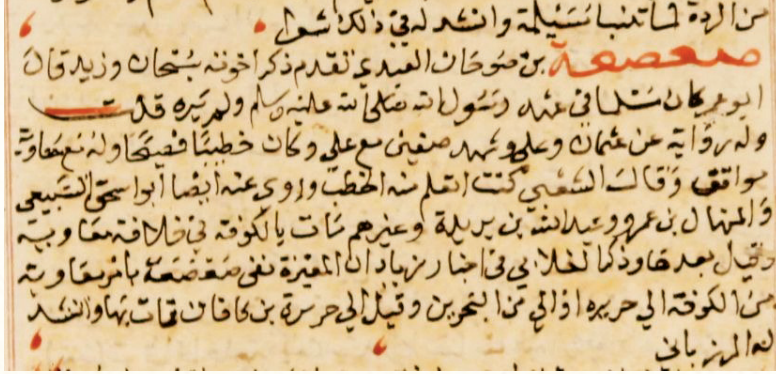 من الردة لما تنبا مسيلمة وانشد له في ذلك شعرا
صعصعة بن صوحان العبدي تقدم ذكر اخوته سيحان وزيد قال
ابو عمر كان مسلما في عهد رسول الله صلى الله عليه وسلم ولم يره قلت
وله رواية عن عثمان وعلي وشهد صفين مع علي وكان خطيبا فصيحا وله مع معاوية
مواقف وقال الشعبي كنت اتعلم منه الخطب وروى عنه ايضا ابو اسحق السبيعي
والمنهال بن عمرو وعبد الله بن بريدة وغيرهم مات بالكوفة في خلافة معاوية
وقيل بعدها وذكر العلائي في اخبار زياد ان المغيرة نفى صعصعة بامر معاوية
من الكوفة الى جزيرة اوالي من البحرين وقيل الى جزيرة بن كافان فمات بها وانشد
له المرزباني